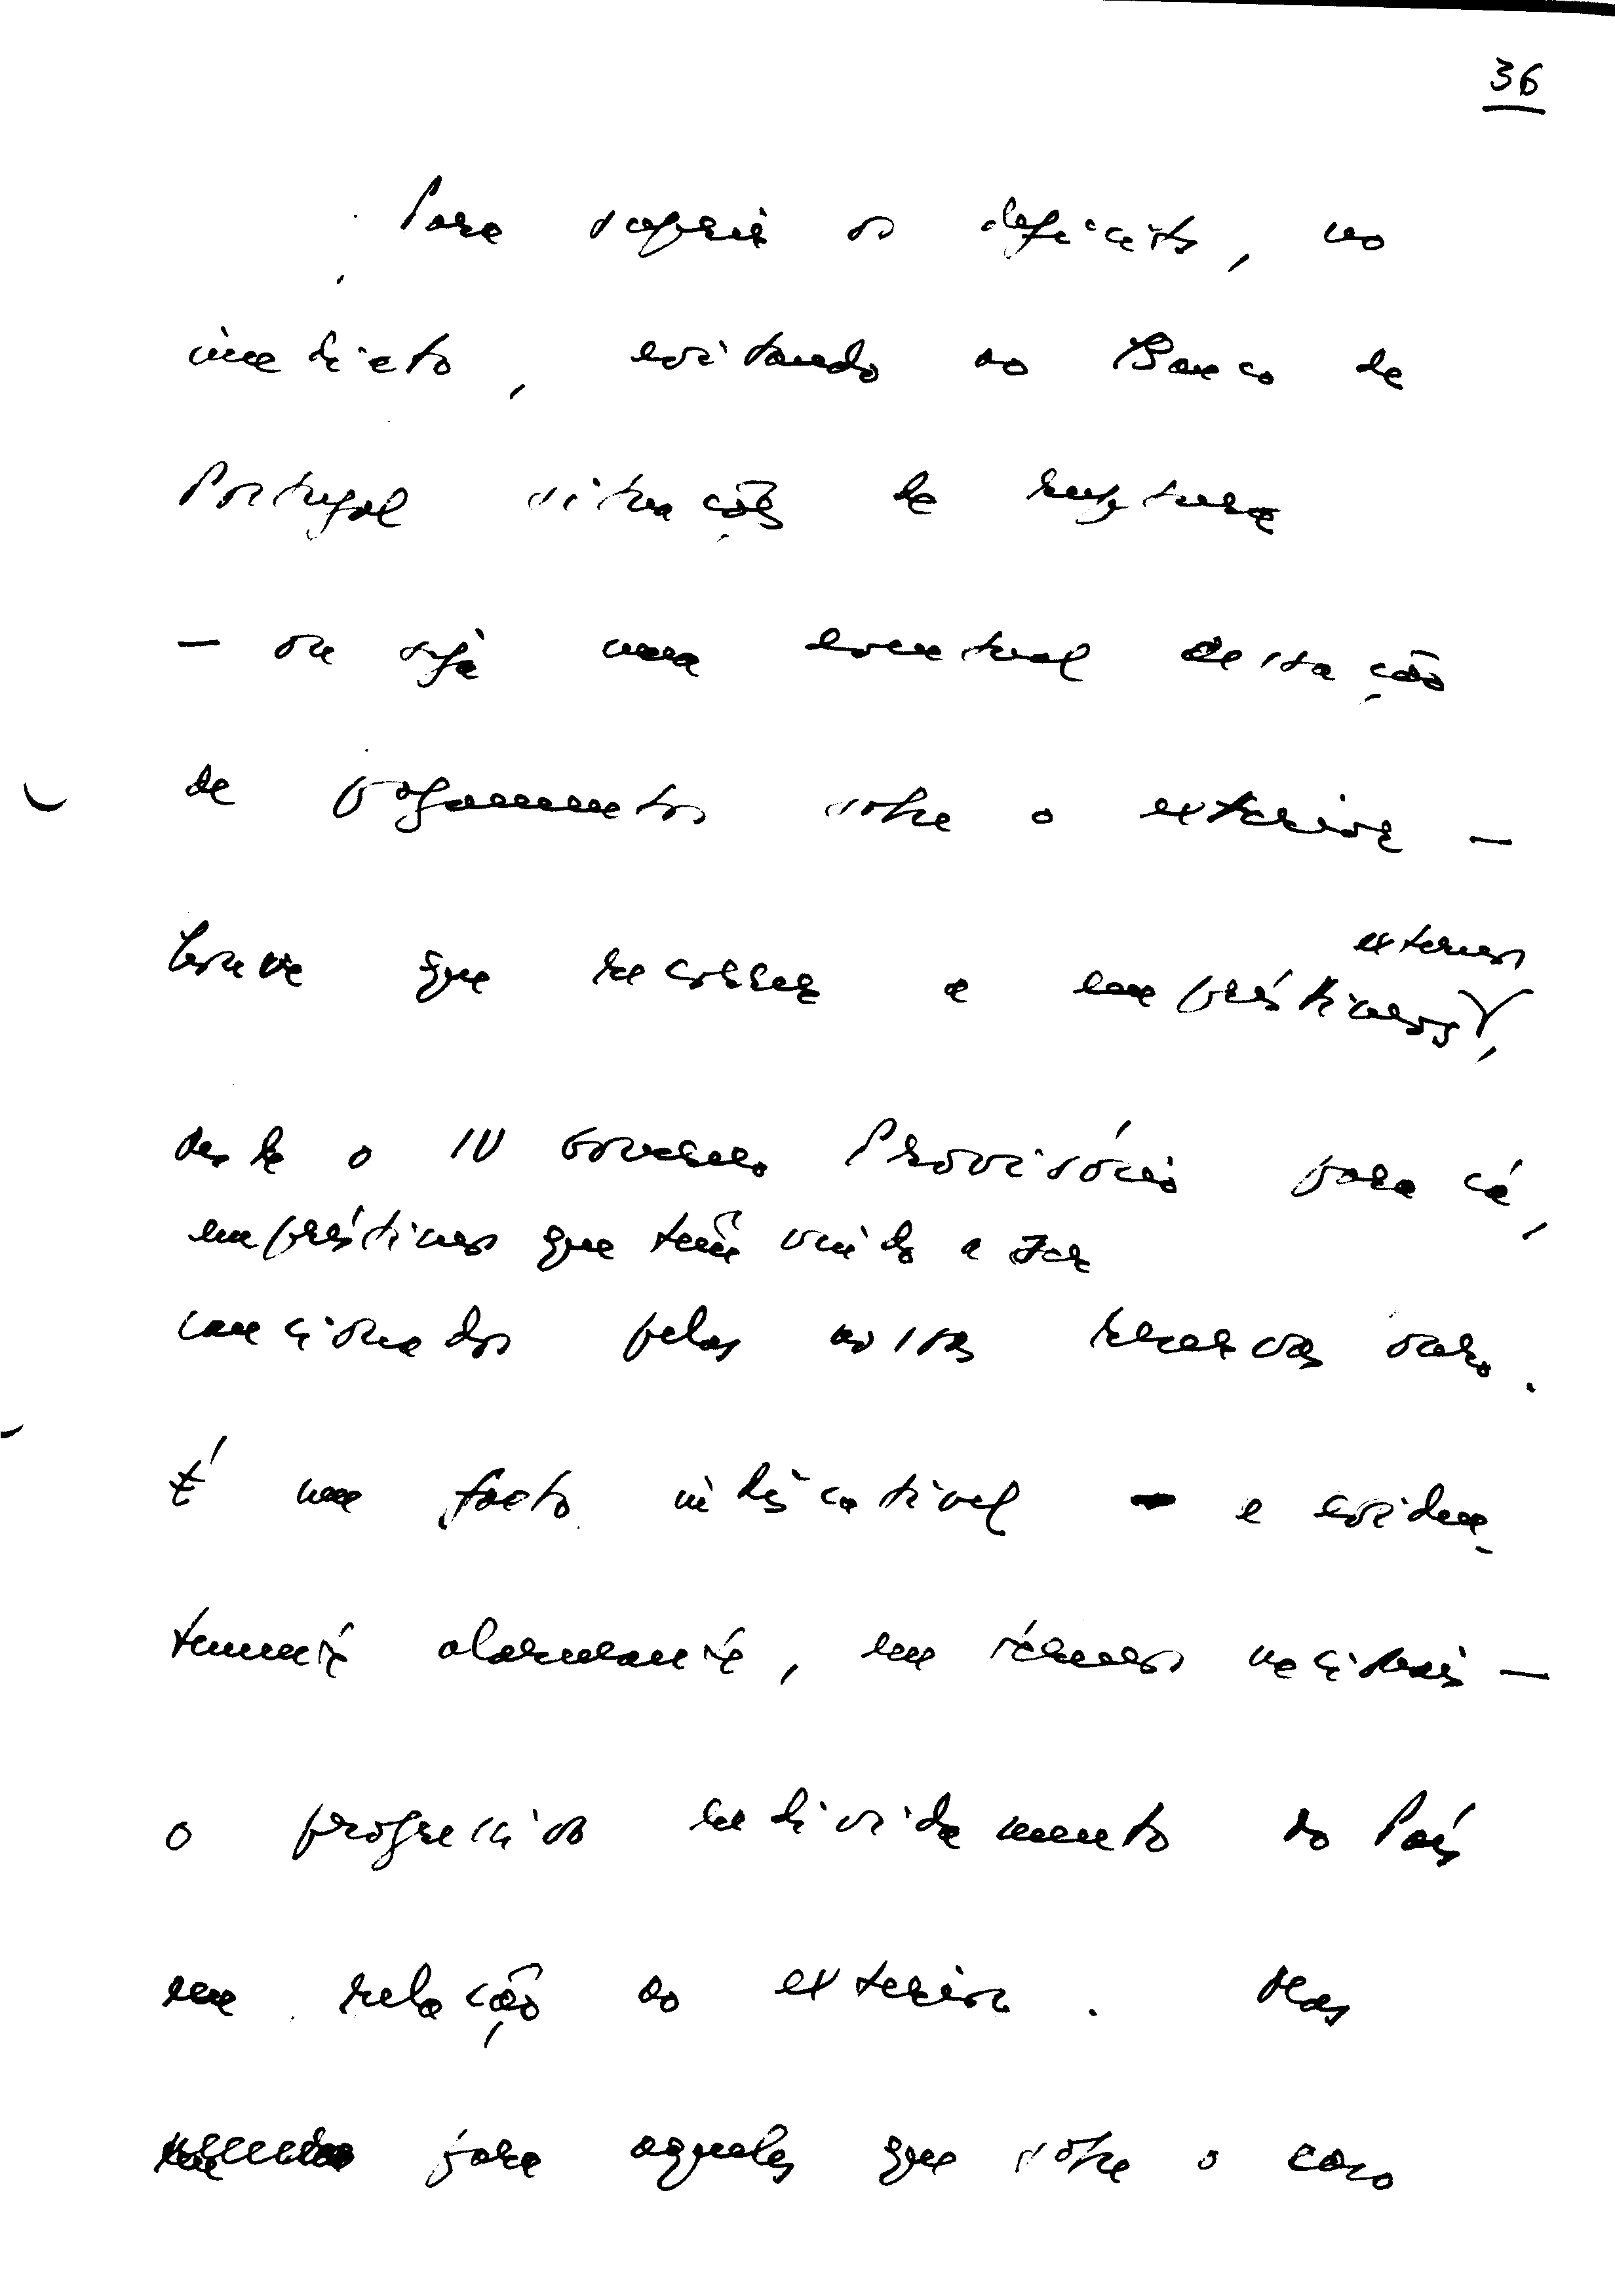 36
Para suprir os deficits, no
imediato, evitando ao Banco de
Portugal situações de ruptura
— ou seja uma eventual cessação
de pagamentos sobre o exterior —
houve que recorrer a empréstimos externos,
desde o IV Governo Provisório para cá,
empréstimos que têm vindo a ser
caucionados pelas nossas reservas ouro.
É um facto indiscutível e eviden-
temente alarmante, em termos nacionais —
o progressivo endividamento do País
em relação ao exterior. Mas
para aqueles que sobre o caso